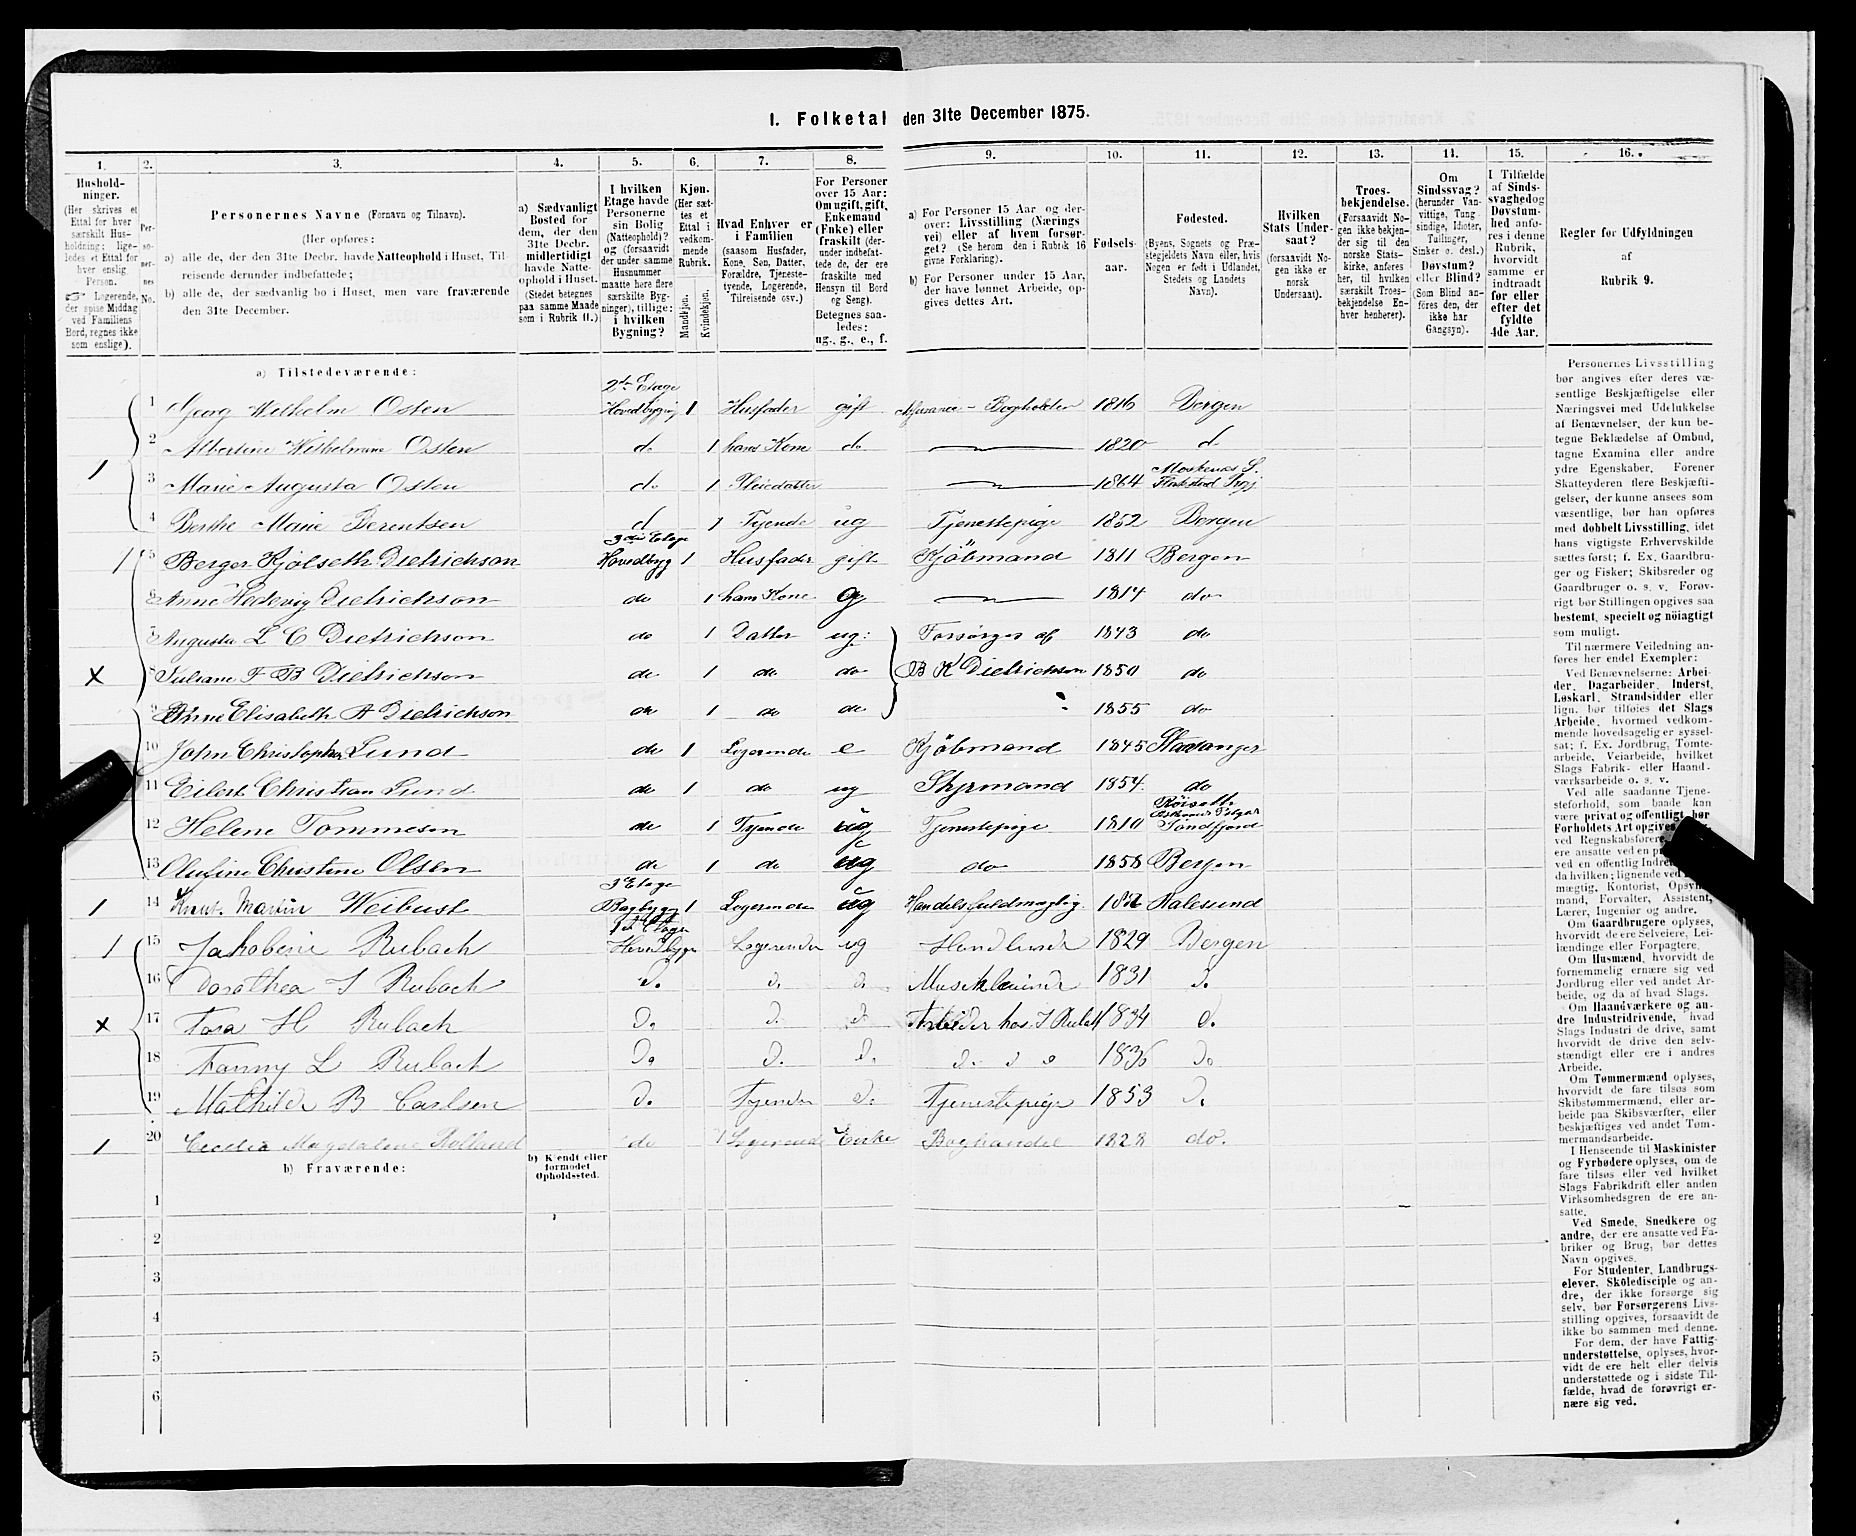 1. Folketal den 31te December 1875.
1. 2. 3. 4. 5. 6. 7. 8. 9. 10. 11. 12. 13. 14. 15. 16.
Hushold-
ninger.
(Her skrives et
Ettal for hver
særskilt Hus-
holdning; lige-
ledes et Ettal for
hver enslig
Person.
☞ Logerende,
der spise Middag
ved Familiens
Bord, regnes ikke
som enslige).
Per-
so-
ner-
nes
No.
Personernes Navne (Fornavn og Tilnavn).
(Her opføres:
a) alle de, der den 31te Decbr. havde Natteophold i Huset, Til-
reisende derunder indbefattede;
b) alle de, der sædvanlig bo i Huset, men vare fraværende
den 31te December.
a) Sædvanligt
Bosted for
dem, der den
31te Decbr.
midlertidigt
havde Natte-
ophold i Huset.
(Stedet betegnes
paa samme Maade
som i Rubrik 11.)
I hvilken
Etage havde
Personerne
sin Bolig
(Natteophold)?
og (forsaavidt
der under samme
Husnummer
maatte høre flere
særskilte Byg-
ninger), tillige:
i hvilken
Bygning?
Kjøn.
(Her sæt-
tes et
Ettal i
vedkom-
mende
Rubrik.
Mandkjøn.
Kvindekjøn.
Hvad Enhver er
i Familien
(saasom Husfader,
Kone, Søn, Datter,
Forældre, Tjeneste-
tyende, Logerende,
Tilreisende osv.)
For Personer
over 15 Aar:
Om ugift, gift,
Enkemand
(Enke) eller
fraskilt (der-
under indbefat-
tede de, der ere
fraskilte med
Hensyn til Bord
og Seng).
Betegnes saa-
ledes:
ug., g., e., f.
a) For Personer 15 Aar og der-
over: Livsstilling (Nærings
vei) eller af hvem forsør-
get? (Se herom den i Rubrik 16
givne Forklaring).
b) For Personer under 15 Aar,
der have lønnet Arbeide, op-
gives dettes Art.
Fødsels-
aar.
Fødested.
(Byens, Sognets og Præ-
stegjeldets Navn eller, hvis
Nogen er født i Udlandet,
Stedets og Landets
Navn).
Hvilken
Stats Under-
saat?
(forsaavidt No-
gen ikke er
norsk
Undersaat).
Troes-
bekjendelse.
(Forsaavidt No-
gen ikke bekjen-
der sig til den
norske Stats-
kirke, anføres
her, til hvilken
særskilt Troes-
bekjendelse En-
hver henhører).
Om
Sindssvag?
(herunder Van-
vittige, Tung
sindige, Idioter,
Tullinger,
Sinker o. desl.)
Døvstum?
eller Blind?
(Som Blind an-
føres den, der
ikke har
Gangsyn).
I Tilfælde
af Sinds-
svaghed og
Døvstum-
hed anfø-
res i denne
Rubrik,
hvorvidt
samme er
indtraadt
før eller
efter det
fyldte
4de Aar.
Regler for Udfyldningen
af
Rubrik 9.
a) Tilstedeværende:
1 Georg Wilhelm Osten 2den Etage Hovedbygning 1 Husfader gift Assurance-Bogholder 1816 Bergen
2 Albertine Wilhelmine Osten do 1 hans Kone do 1820 d
1 3 Marie Augusta Osten do 1 Pleiedatter 1864 Moskenæs S. Flakstad Prgj
4 Berthe Marie Berentsen d 1 Tyende ug Tjenestepige 1852 Bergen
1 5 Berger Kjølseth Dietrichson 3die Etage Hovedbyg 1 Husfader gift Kjøbmand 1811 Bergen
6 Anne Hedevig Dietrichson do 1 hans Kone g 1814 do
7 Augusta L C Dietrichson do 1 Datter ug: Forsørges af 1843 do
x 8 Juliane F B Dietrichson do 1 do do B K Dietrichson 1850 do
9 Anne Elisabeth A Dietrichson do 1 do do 1855 do
10 John Christopher Lund do 1 Logerende e Kjøbmand 1845 Stavanger
11 Eilert Christian Lund do 1 do ug Styrmand 1854 do
12 Helene Tommesen do 1 Tyende ug Tjenestepige 1810 Søndfjord
13 Olufine Christine Olsen do 1 do ug do 1858 Bergen
1 14 Knut Martin Weibust 3 Etage Bagbygn 1 Logerende ug Handelsfuldmægtig Aalesund
1 15 Jakobine Rubach 1st Etage Hovedbygn Logerende ug Handlende 1829 Bergen
16 Dorothea J Rubach do d. d. Musiklærerinde 1831 d.
x 17 Thora H Rubach Do d. d. Arbeider hos J Rubach 1834 d.
18 Fanny L Rubach Do D. D. d. d o 1836 do
19 Mathilde B Carlsen D. Tyende d. Tjenestepige 1853 d.
1 20 Cecelia Magdalene Rolland do 1 Logerende Enke Boghandel 1828 do.
b) Fraværende:
b) Kjendt eller
formodet
Opholdssted.
1
2
3
4
5
6
Personernes Livsstilling
bør angives efter deres væ-
sentlige Beskjæftigelse eller
Næringsvei med Udelukkelse
af Benævnelser, der kun be-
tegne Beklædelse af Ombud,
tagne Examina eller andre
ydre Egenskaber. Forener
Skatteyderen flere Beskjæfti-
gelser, der kunne ansees som
væsentlige, bør han opføres
med dobbelt Livsstilling, idet
hans vigtigste Erhvervskilde
sættes først; f. Ex. Gaardbru-
ger og Fisker; Skibsreder og
Gaardbruger o. s. v. Forøv-
rigt bør Stillingen opgives saa
bestemt, specielt og nöiagtigt
som muligt.
Til nærmere Veiledning an-
føres her endel Exempler:
Ved Benævnelserne: Arbei-
der, Dagarbeider, Inderst,
Løskarl, Strandsidder eller
lign. bør tilføies det Slags
Arbeide, hvormed vedkom-
mende hovedsagelig er syssel-
sat; f. Ex. Jordbrug, Tomte-
arbeide, Veiarbeide, hvilket
Slags Fabrik- eller Haand-
værksarbeide o. s. v.
Ved alle saadanne Tjene-
steforhold, som baade kan
være privat og offentligt, bør
Forholdets Art opgives,
ved Regnskabsførere,
ere ansatte ved en
ved en offentlig Indretning
da hvilken; lignende ved
mægtig, Kontorist, Opsyns-
mand, Forvalter, Assistent,
Lærer, Ingeniør og andre.
Om Gaardbrugere oplyses,
hvorvidt de ere Selveiere, Lei-
lændinge eller Forpagtere.
Om Husmænd, hvorvidt de
fornemmelig ernære sig ved
Jordbrug eller ved andet Ar-
beide, og da af hvad Slags.
Om Haandværkere og an-
dre Industridrivende, hvad
Slags Industri de drive, samt
hvorvidt de drive den selv-
stændigt eller ere i andres
Arbeide.
Om Tømmermænd oplyses,
hvorvidt de fare tilsøs som
Skibstømmermænd, eller ar-
beide paa Skibsværfter, eller
beskjæftiges ved andet Tøm-
mermandsarbeide.
I Henseende til Maskinister
og Fyrbødere oplyses, om de
fare tilsøs eller ved hvilket
Slags Fabrikdrift eller anden
Virksomhedsgren de ere an-
satte.
Ved Smede, Snedkere og
andre, der ere ansatte ved Fa-
briker og Brug, bør dettes
Navn opgives.
For Studenter, Landbrugs-
elever, Skoledisciple og an-
dre, der ikke forsørge sig
selv, bør Forsørgerens Livs-
stilling opgives, forsaavidt de
ikke bo sammen med denne.
For dem, der have Fattig-
understøttelse, oplyses, hvor-
vidt de ere helt eller delvis
understøttede og i sidste Til-
fælde, hvad de forøvrigt er-
nære sig ved.